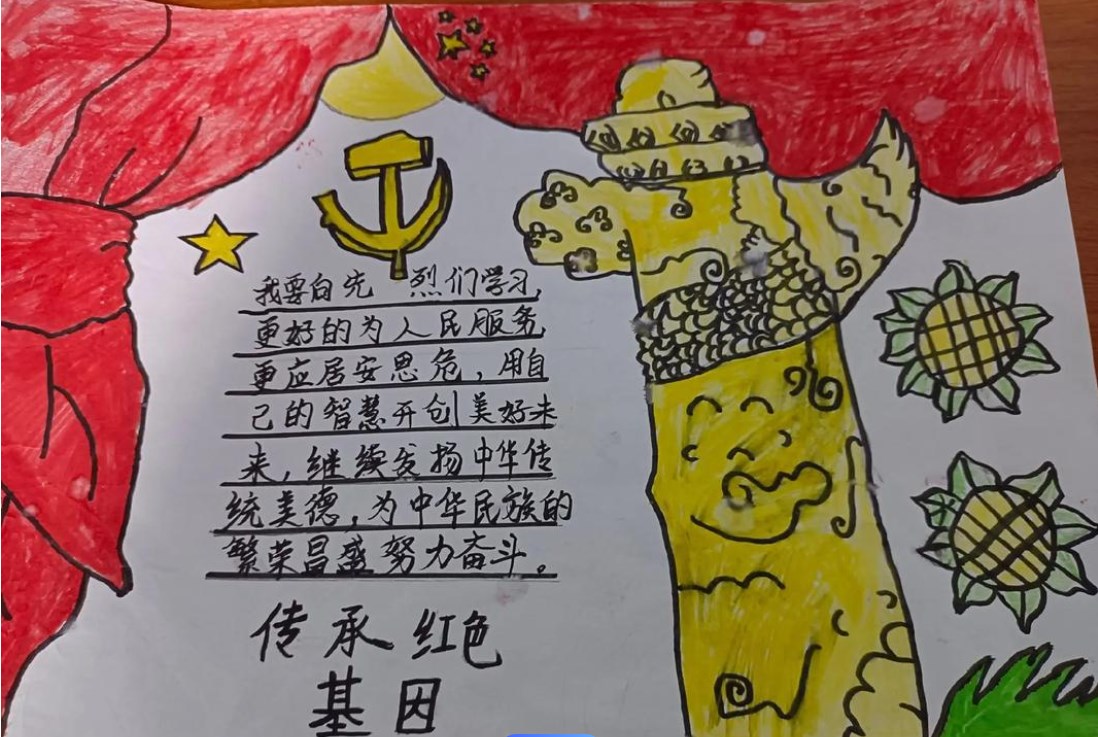 我要向先烈们学习,
更好的为人民服务
更应居安思危，用自
己的智慧开创美好未
来，继续发扬中华传
统美德，为中华民族的
繁荣昌盛努力奋斗。
传承红色
基因